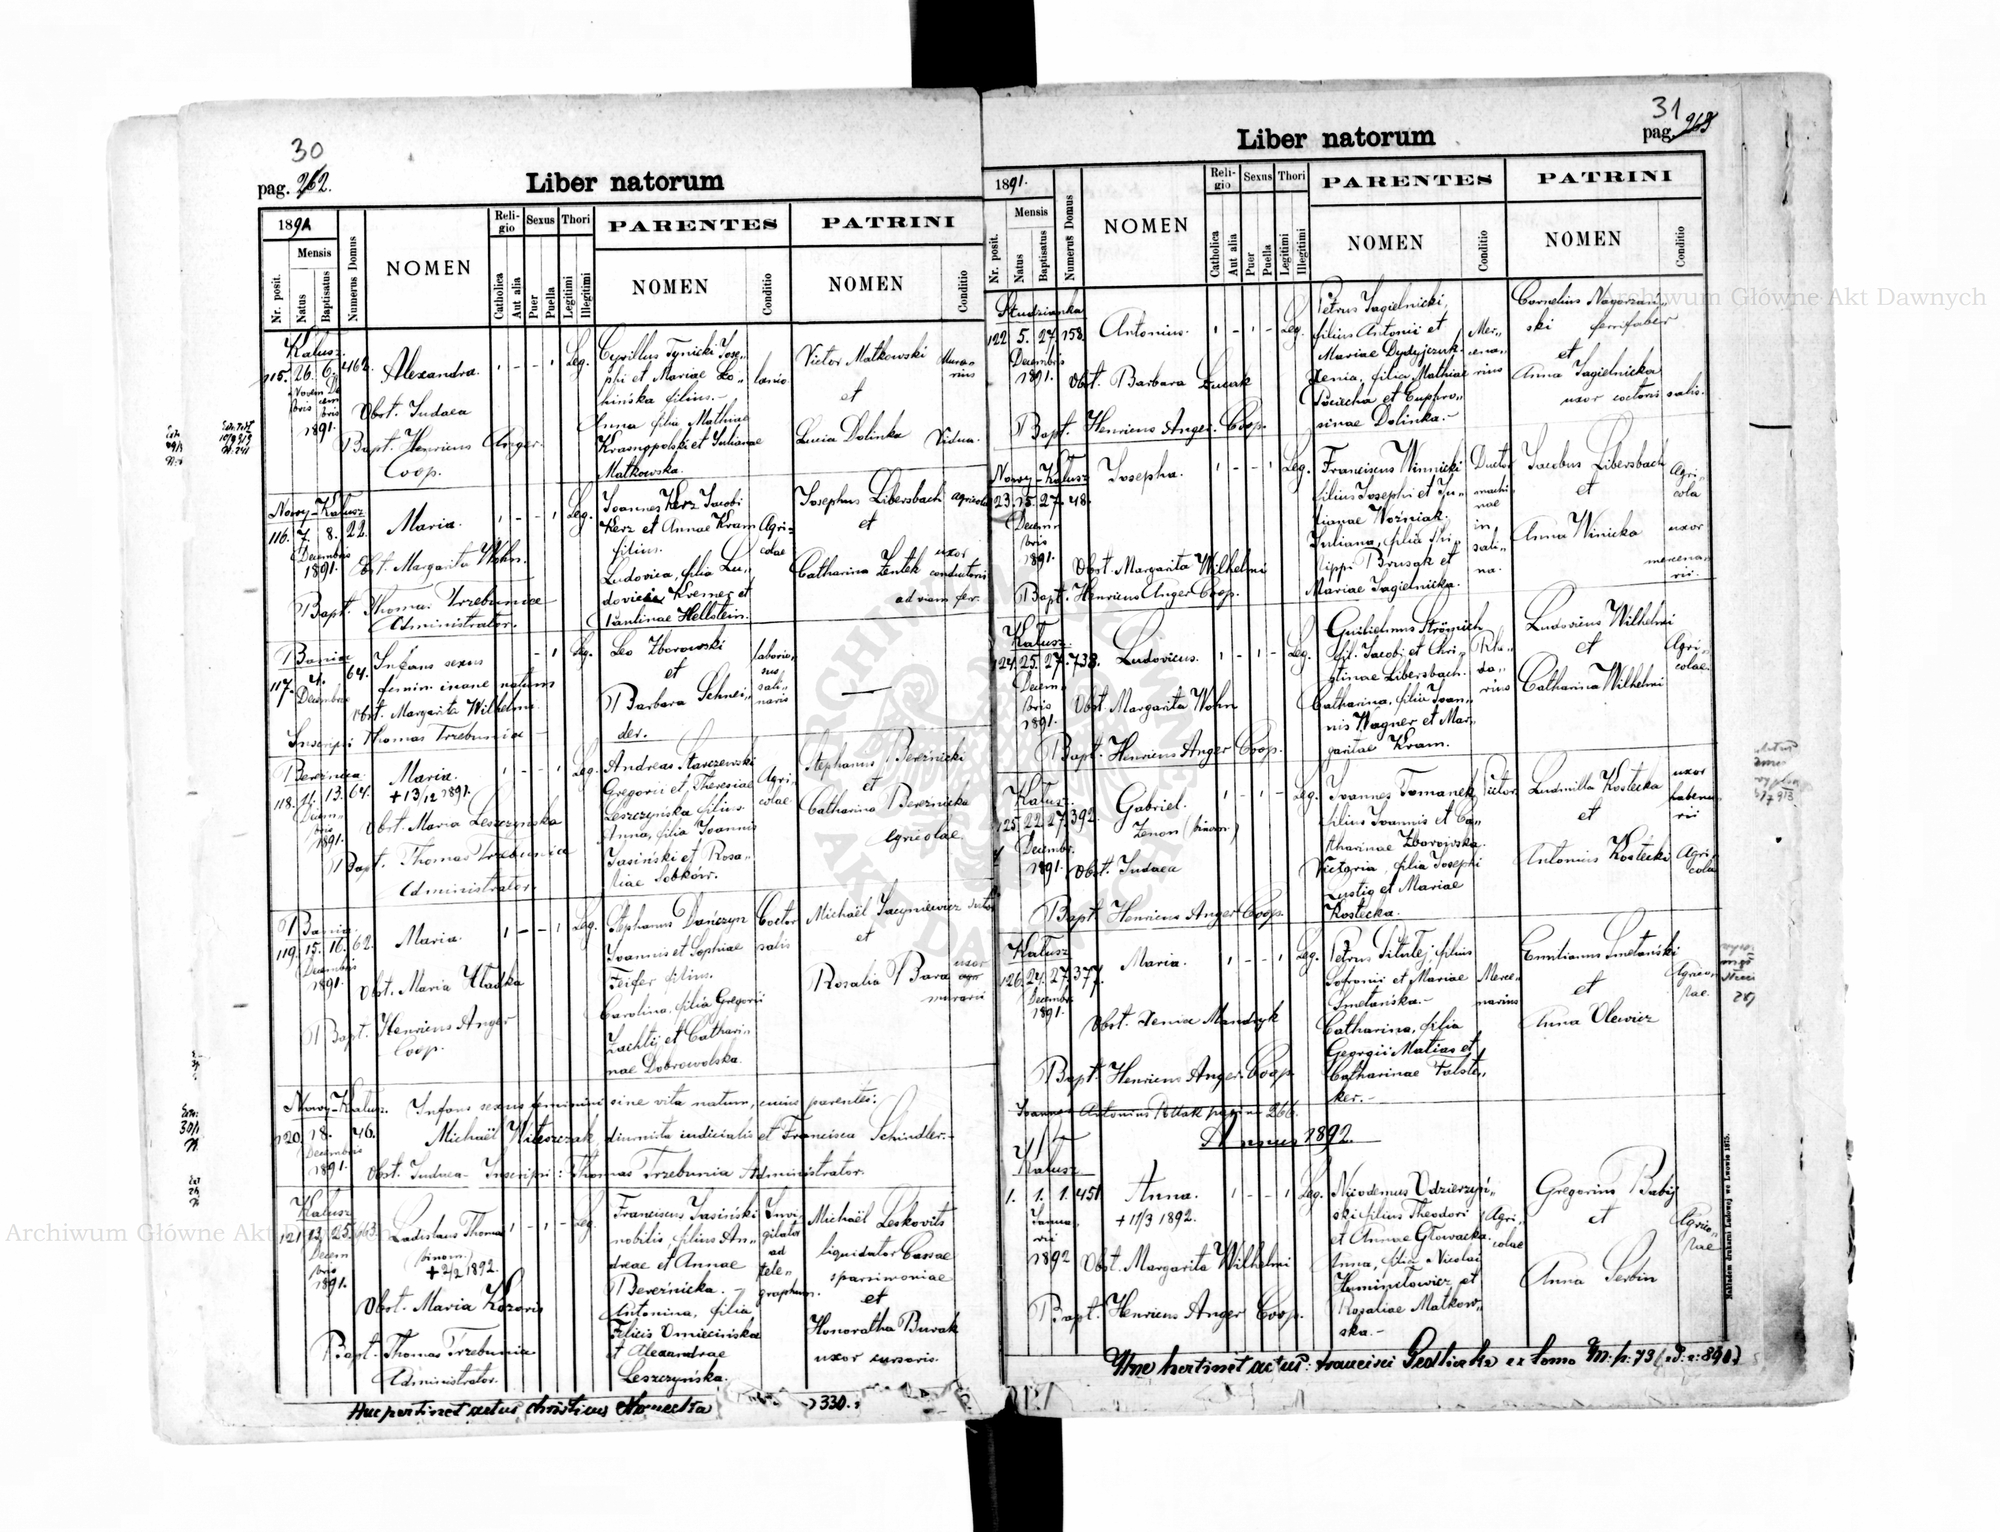 30
pag. 262.
Liber natorum
1891
Nr. posit.
Mensis
Natus
Baptisatus
Numerus Domus
NOMEN
Reli-
gio
Catholica
Aut alia
Sexus
Puer
Puella
Thori
Legitimi
Illegitimi
PARENTES
NOMEN
Conditio
PATRINI
NOMEN
Conditio
Kalusz.
115. 26. 6. 462. Alexandra. 1 - - 1 Leg.
1891.
Obst. Judaea
Bapt. Henricus Anger.
Coop.
Cyrillus Tynicki Jose-
phi et Mariae Lo-
hińska filius.
Anna filia Mathiae
Krasnopolski et Julianae
Matkowska.
lanio
Victor Matkowski
et
Lucia Dolinka Vidua.
Nowy-Kalusz
116. 7. 8. 22. Maria. 1 - - 1 Leg.
Decembris
1891. Obst. Margarita Wohn.
Bapt. Thomas Trzebunia
Administrator.
Joannes Kerz Jacobi
Kerz et Annae Kram
filius.
Ludovica, filia Lu-
dovici Kremer et
Paulinae Hellstein.
Agri-
colae
Josephus Libersbach agricola
et
uxor
Catharina Zentek conductoris
ad viam fer.
Bania
117. 4. 64. Infans sexus
Decembris femin. inane natum
Obst. Margarita Wilhelmi
Inscripsi Thomas Trzebunia
- 1 Leg.
Leo Zborowski
et
Barbara Schnei-
der.
laborio-
sus
sali-
naris
Bereźnica.
118. 11. 13. 64. Maria. 1 - - 1 Leg.
+ 13/12 1891.
1891.
Obst. Maria Leszczyńska
Bapt. Thomas Trzebunia
Administrator.
Andreas Starczewski
Gregorii et Theresiae
Leszczyńska filius.
Anna, filia Joannis
Jasiński et Rosa-
liae Sobków.
Agri-
colae
Stephanus Bereźnicki
et
Catharina Bereźnicka
Agricolae
Bania.
119. 15. 16. 62. Maria. 1 - - 1 Leg.
Decembris
1891.
Obst. Maria Hladka
Bapt. Henricus Anger
Coop.
Stephanus Dańczyn
Joannis et Sophiae
Feifer filius.
Carolina, filia Gregorii
Zachtij et Cathari-
nae Dobrowolska.
Coctor
salis
Michaël Jacyniewicz
et
Rosalia Bara uxor
murarii
Nowy-Kalusz. Infans sexus feminini sine vita natum, cuius parentes:
120. 18. 46. Michaël Witeszczak, diurnista iudicialis et Francisca Schindler.
Decembris
1891. Obst. Judaea - Inscripsi: Thomas Trzebunia Administrator.
Kalusz
121. 13. 25. 663. Ladislaus Thomas 1 - 1 - Leg.
Decem
bris (binom.)
1891. + 2/2 1892.
Obst. Maria Kozoris
Bapt. Thomas Trzebunia
Administrator.
Franciscus Jasiński
nobilis, filius An-
dreae et Annae
Bereźnicka. -
Antonina, filia
Felicis Omiecińska
et Alexandrae
Leszczyńska.
Invi-
gilator
ad
tele-
graphum.
Michaël Leskovits
liquidator Cassae
sparsimoniae
et
Honoratha Burak
uxor cursoris.
Huc pertinet actus 330.
31
pag. 263
Liber natorum
1891.
Nr. posit.
Mensis
Natus
Baptisatus
Numerus Domus
NOMEN
Reli-
gio
Catholica
Aut alia
Sexus
Puer
Puella
Thori
Legitimi
Illegitimi
PARENTES
NOMEN
Conditio
PATRINI
NOMEN
Conditio
Studzianka
122. 5. 27. 158. Antonius. 1 - 1 - Leg.
Decembris
1891. Obst. Barbara Lucak
Bapt. Henricus Anger. Coop.
Petrus Jagielnicki,
filius Antonii et
Mariae Dydyjczuk.
Xenia, filia Mathiae
et Euphro-
sinae Dolinka. -
Mer-
cena-
rius
Cornelius Nagorzań-
ski ferrifaber
et
Anna Jagielnicka
uxor coctoris salis.
Nowy-Kalusz
123. 15. 27. 48. Josepha. 1 - - 1 Leg.
Decem-
bris
1891.
Obst. Margarita Wilhelmi
Bapt. Henricus Anger Coop.
Franciscus Winnicki
filius Josephi et Ju-
lianae Woźniak.
Juliana, filia Phi-
lippi Brusak et
Mariae Jagielnicka.
Ductor
machi-
nae
in
sali-
na.
Jacobus Libersbach
et
Anna Winicka
Agri-
cola
uxor
mercena-
rii.
Kalusz.
124. 25. 27. 738. Ludovicus. 1 - 1 - Leg.
Decem-
bris
1891. Obst. Margarita Wohn
Bapt. Henricus Anger Coop.
Guilielmus Strömich
fil. Jacobi et Chri-
stinae Libersbach.
Catharina, filia Joan-
nis Wagner et Mar-
garitae Kram.
Rhe-
da-
rius
Ludovicus Wilhelmi
et
Catharina Wilhelmi
Agri-
colae
Kalusz.
125. 22. 27. 392. Gabriel. 1 - 1 - Leg.
Zenon (binom.)
Decembr.
1891. Obst. Judaea
Bapt. Henricus Anger Coop.
Joannes Tomanek
filius Joannis et Ca-
tharinae Zborowska.
Victoria, filia Josephi
Lustig et Mariae
Kostecka.
Pictor
Ludmilla Kostecka
et
Antonius Kostecki
uxor
habena-
rii
Agri-
cola
Kalusz
126. 24. 27. 377. Maria. 1 - - 1 Leg.
Decembr.
1891.
Obst. Xenia Mandryk
Bapt. Henricus Anger. Coop.
Petrus Titulej, filius
Sofronii et Mariae
Smetańska. -
Catharina, filia
Georgii Matias et
Catharinae Falste-
ker. -
Merce-
narius
Emilianus Smetański
et
Anna Olewicz
Agrico-
lae.
Joannes Antonius Pollak pagina 266.
Annus 1892.
Kalusz
1. 1. 1. 451 Anna. 1 - - 1 Leg.
Janua-
rii + 11/3 1892.
1892 Obst. Margarita Wilhelmi
Bapt. Henricus Anger Coop.
Nicodemus Udzierzyń-
ski filius Theodori
et Annae Głowacka.
Anna, filia Nicolai
Huminelowicz et
Rosaliae Matkow-
ska. -
Agri-
colae
Gregorius Babij
et
Anna Serbin
Agrico-
lae
Huc pertinet actus: Francisci Pedlicska ex tomo M. p. 73
Nakładem drukarni Ludowej we Lwowie 1875.
Archiwum Główne Akt Dawnych
Archiwum Główne Akt Dawnych
ARCHIWUM GŁÓWNE AKT DAWNYCH